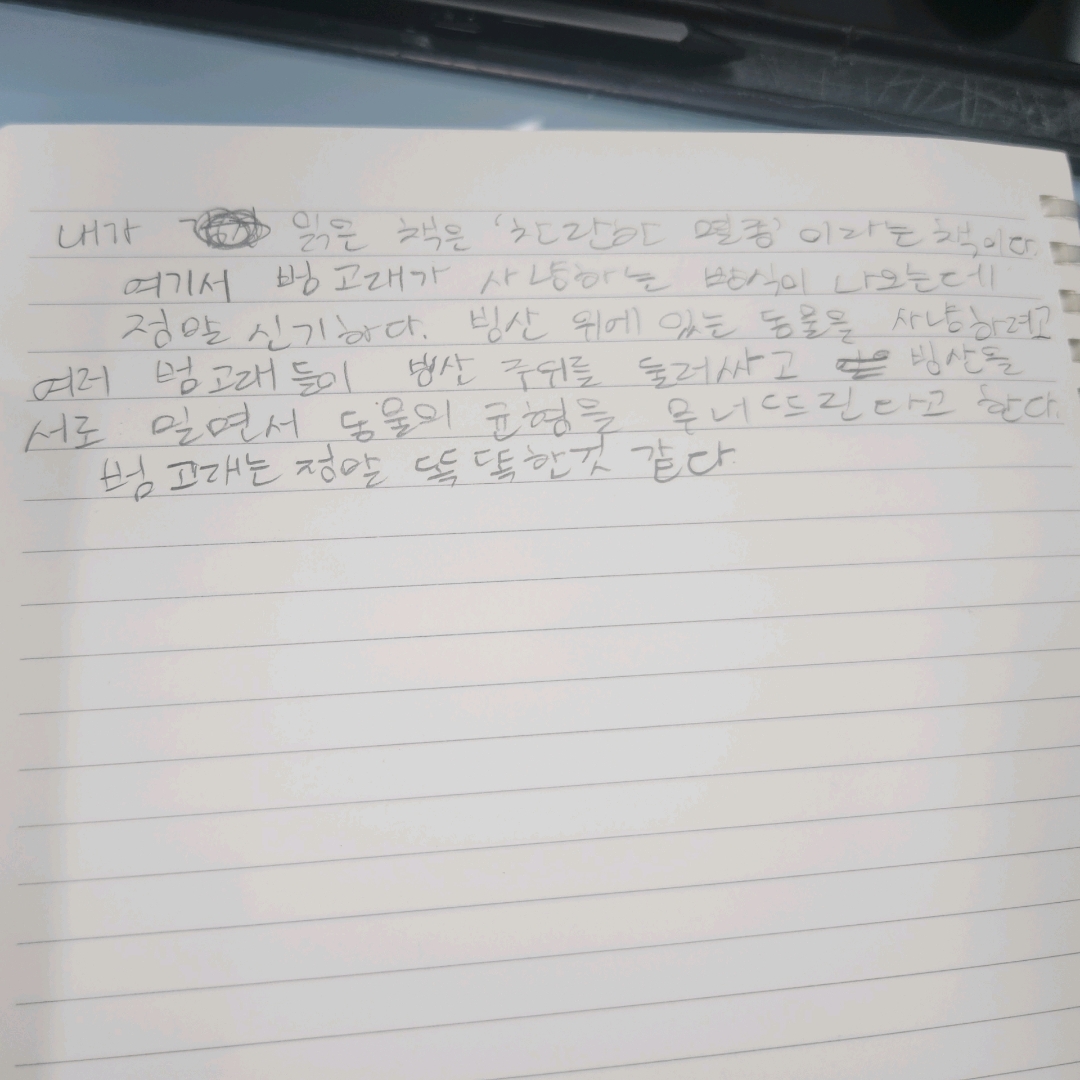 내가 읽은 책은 '찬란한 멸종' 이라는 책이다.
여기서 범고래가 사냥하는 방식이 나오는데
정말 신기하다. 빙산 위에 있는 동물을 사냥하려고
여러 범고래들이 빙산 주위를 둘러싸고 빙산을
서로 밀면서 동물의 균형을 무너뜨린다고 한다.
범고래는 정말 똑똑한것 같다.